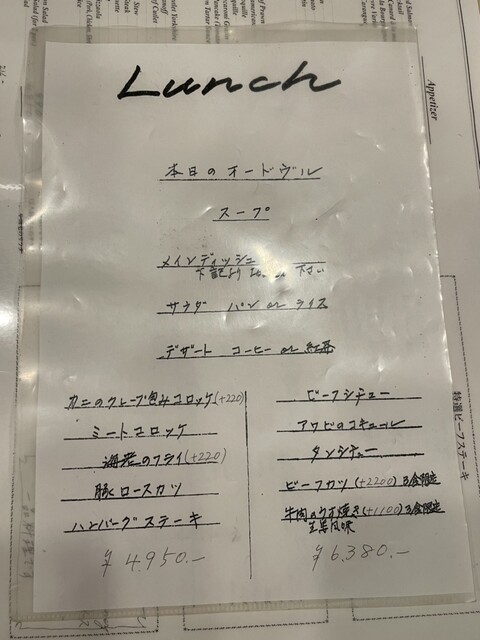 Lunch
本日のオードヴル
スープ
メインディッシュ
下記より 下さい
サラダ パン or ライス
デザート コーヒー or 紅茶
カニのクレープ包みコロッケ(+220)
ミートコロッケ
海老のフライ(+220)
豚ロースカツ
ハンバーグステーキ
¥4.950.-
ビーフシチュー
アワビのコキール
タンシチュー
ビーフカツ(+2200)3食限定
牛肉の(+1100)3食限定
生姜風味
¥6.380.-
Appetizer
特選ビーフステーキ